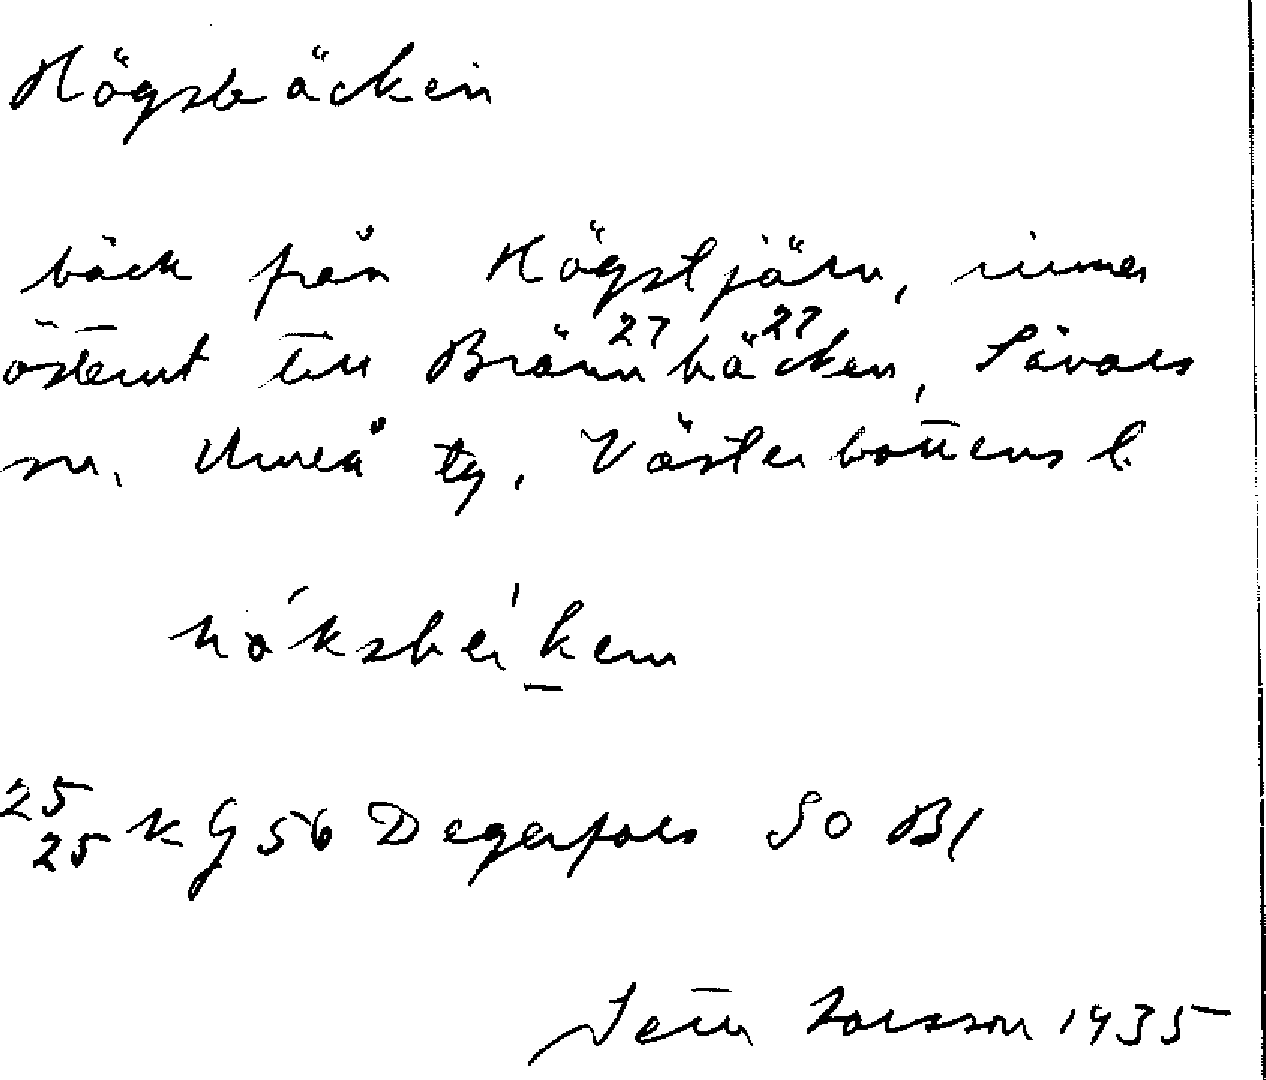 Högsbäcken
bäck från Högstjärn, rinner
österut till Bränn²⁷bä²⁷cken, Sävars
sn, Umeå tg, Västerbottens l.
25
25 KG 56 Degerfors SO Bl
Larsson 1935